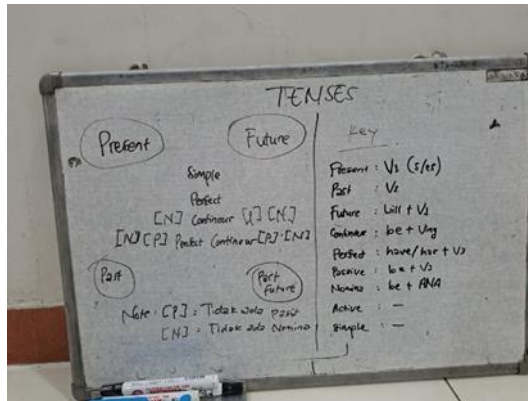 TENSES
Present
Future
Simple
Perfect
[N] Continour [N]
[N][P] Perfect Continour [P] [N]
Past
Past Future
Note : [P] = Tidak ada pasif
[N] = Tidak ada Nomina
Key
Present : V1 (s/es)
Past : V2
Future : Will + V1
Continour : be + Ving
Perfect : have/has + V3
Passive : be + V3
Nomina : be + ANA
Active : —
Simple : —